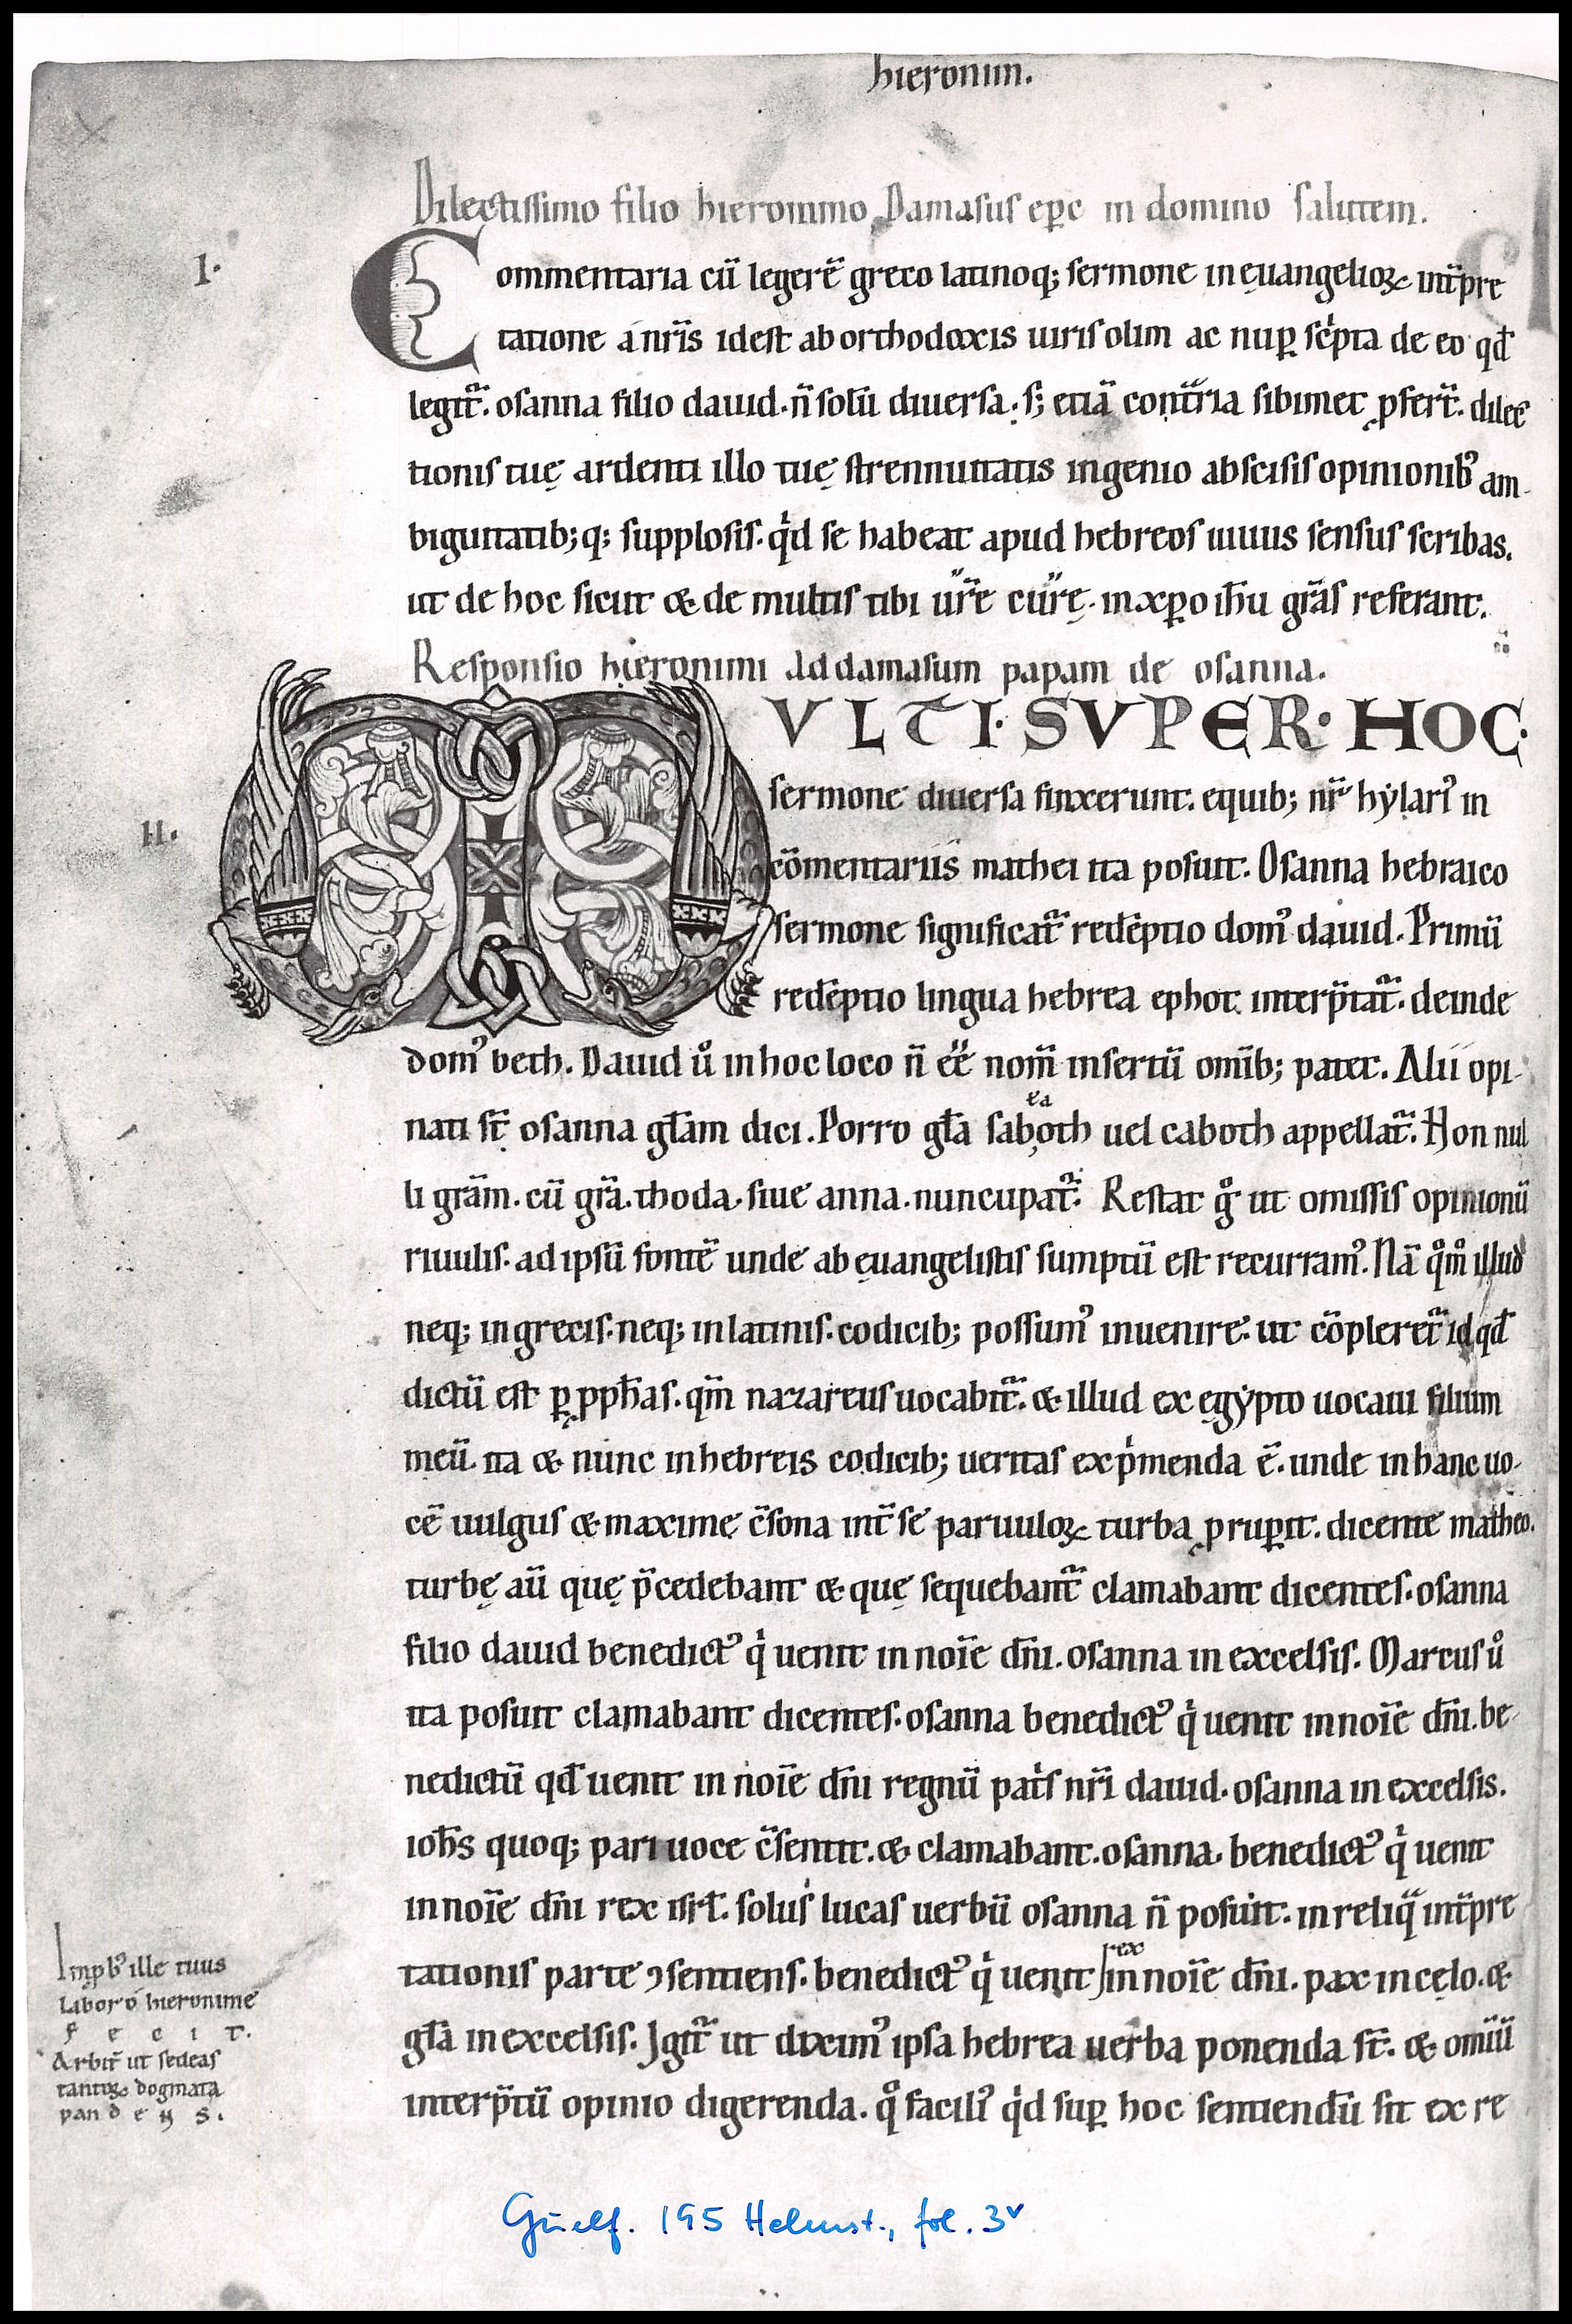 hieronim.
Dilectissimo filio hieronimo Damasus ep̄c in domino salutem.
I.
Commentaria cū legerē greco latinoq; sermone in euangelioꝝ int̄pre
tatione a nr̄is idest ab orthodoxis uiris olim ac nuꝑ sc̓pta de eo qd̄
legit᷑. osanna filio dauid. n̄ solū diuersa. s; etiā cont̄ria sibimet ꝓfert᷑. dilec̄
tionis tuę ardenti illo tuę strennuitatis ingenio abscisis opinionibꝰ am-
biguitatib; q; supplosis. q̓d se habeat apud hebreos uiuus sensus scribas.
ut de hoc sicut & de multis tibi ur̄e cur̄ę. in xp̄o ih̄u grā̄s referant.
Responsio hieronimi ad damasum papam de osanna.
II.
MVLTI. SVPER. HOC.
sermone diuersa finxerunt. equib; nr̄ hẏlariꝰ in
cōmentariis mathei ita posuit. Osanna hebraico
sermone significat᷑ redēptio domꝰ dauid. Primū
redēptio lingua hebrea ephot interp̄tat᷑. deinde
domꝰ beth. Dauid ů in hoc loco n̄ eē nom̄ insertū omīb; patet. Alii opi-
nati st̄ osanna gl̄am dici. Porro gl̄a saboth uel caboth appellat᷑. Non nul
ea
li grā̄m. cū grā̄. thoda. siue anna. nuncupat᷑. Restat g̊ ut omissis opinionū
riuulis. ad ipsū fontē unde ab euangelistis sumptū est recurramꝰ. Nā q̊m̊ illud
neq; in grecis. neq; in latinis. codicib; possumꝰ inuenire. ut cōpleret᷑ id qd̄
dictū est ꝑ ꝓph̄as. qm̄ nazareus uocabit᷑. & illud ex egẏpto uocaui filium
meū. ita & nunc in hebreis codicib; ueritas exp̓menda ē. unde in hanc uo-
cē uulgus & maxime c̄sona int̄ se paruuloꝝ turba ꝓruꝑit. dicente matheo.
turbę aū quę p̄cedebant & quę sequebant᷑ clamabant dicentes. osanna
filio dauid benedictꝰ q̓ uenit in noīe dn̄i. osanna in excelsis. Marcus ů
ita posuit clamabant dicentes. osanna benedictꝰ q̓ uenit in noīe dn̄i. be-
nedictū qd̄ uenit in noīe dn̄i regnū pat̓s nr̄i dauid. osanna in excelsis.
ioh̄s quoq; pari uoce c̄sentit. & clamabant. osanna. benedictꝰ q̓ uenit
in noīe dn̄i rex isrl̄. solus lucas uerbū osanna n̄ posuit. in reliq̄ int̄pre
tationis parte ꝯsentiens. benedictꝰ q̓ uenit rex in noīe dn̄i. pax in celo. &
gl̄a in excelsis. Igit᷑ ut diximꝰ ipsa hebrea uerba ponenda st̄. & omīū
interp̄tū opinio digerenda. q̊ faciliꝰ q̓d suꝑ hoc sentiendū sit ex re
Imꝓbꝰ ille tuus
labor ó hieronime
f e c i t.
Arbit̄ ut sedeas
tantoꝝ dogmata
pan d e n s.
Guelf. 195 Helmst., fol. 3v